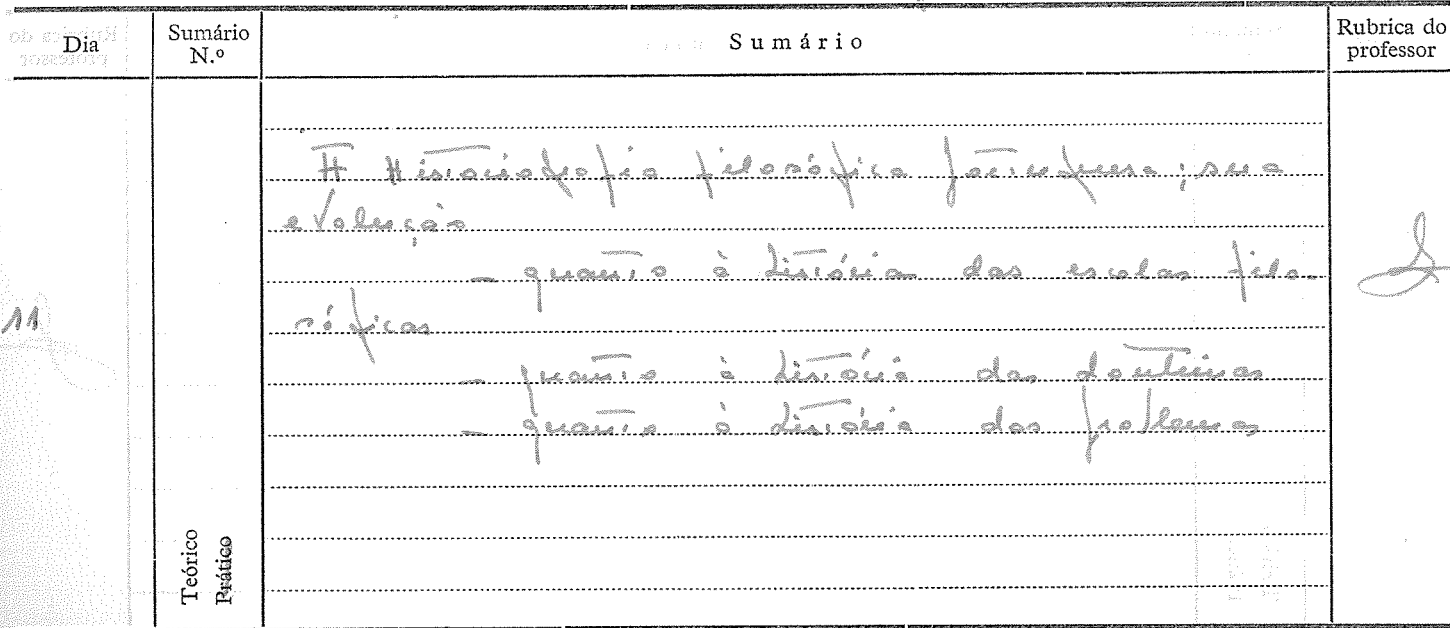 Dia
Sumário N.º
Sumário
Rubrica do professor
A Historiografia filosófica portuguesa; sua
evolução
- quanto à história das escolas filo-
sóficas
11
- quanto à história das doutrinas
- quanto à história dos problemas
Teórico
Prático